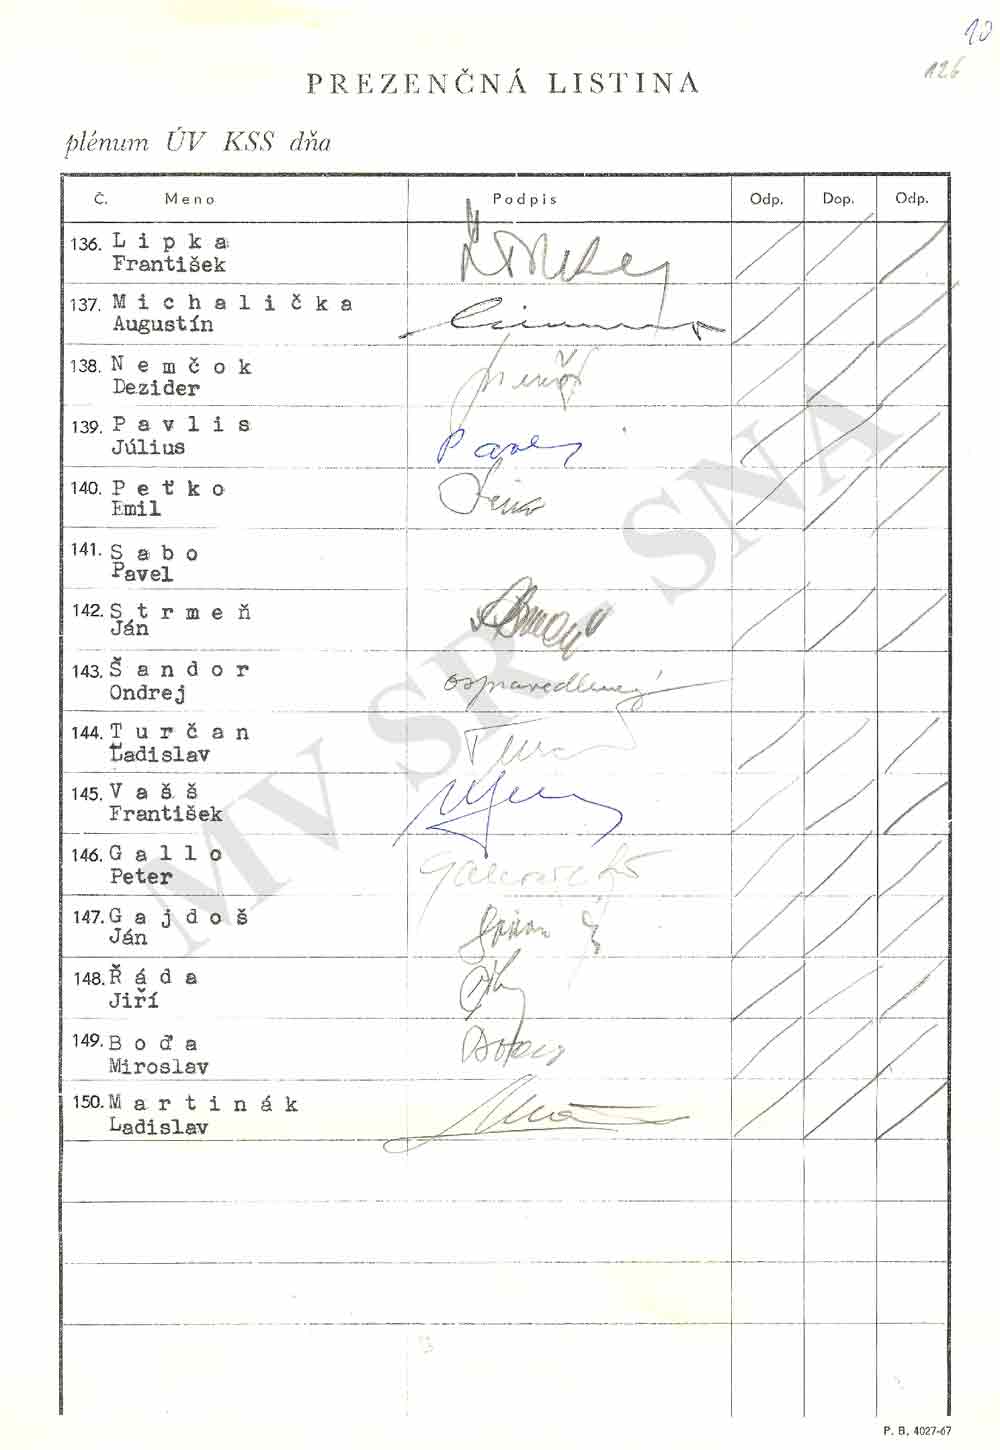 10
126
PREZENČNÁ LISTINA
plénum ÚV KSS dňa
Č. Meno Podpis Odp. Dop. Odp.
136. Lipka
František
137. Michalička
Augustín
138. Nemčok
Dezider
139. Pavlis
Július
140. Peťko
Emil
141. Sabo
Pavel
142. Strmeň
Ján
143. Šandor ospravedlnený
Ondrej
144. Turčan
Ladislav
145. Vašš
František
146. Gallo
Peter
147. Gajdoš
Ján
148. Řáda
Jiří
149. Boďa
Miroslav
150. Martinák
Ladislav
MV SR - SNA
P. B. 4027-67